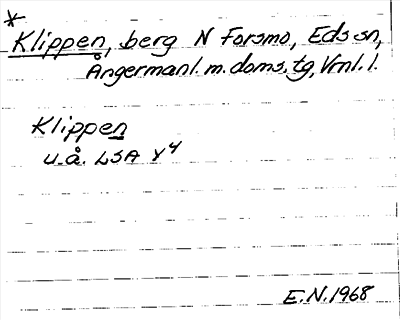 *
Klippen, berg N Forsmo, Eds sn,
Ångermanl. m. doms. tg, Vrnl. l.
Klippen
u.å. LSA Y4
E.N. 1968